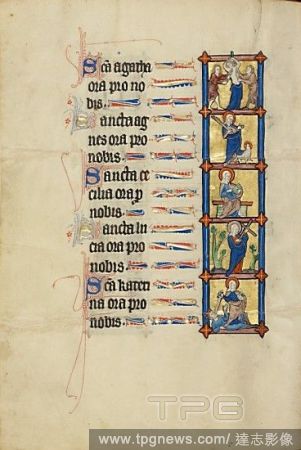 Scā agatha
ora pro no
bis.
Sancta ag
nes ora pro
nobis
Sancta ce
cilia ora p
nobis
Sancta lu
cia ora pro
nobis
Scā kateri
na ora pro
nobis.
TPG
www.tpgnews.com/ 達志影像